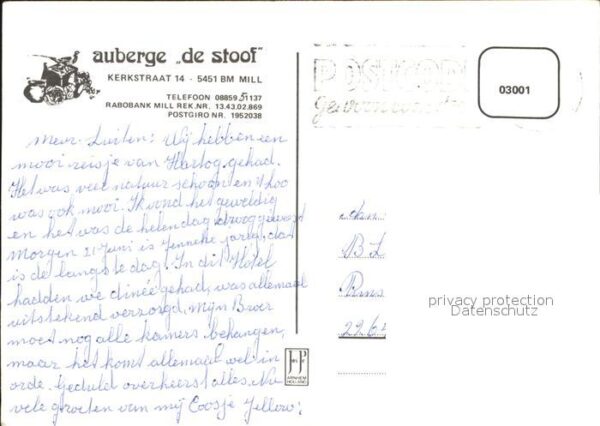 auberge „de stoof"
KERKSTRAAT 14 - 5451 BM MILL
TELEFOON 08859-51137
RABOBANK MILL REK.NR. 13.43.02.869
POSTGIRO NR. 1952038
POSTCODE
03001
Mevr. Luiten: Wij hebben een
mooi reisje van Hartog gehad.
Het was veel natuur schoon en 't Loo
was ook mooi. Ik vond het geweldig
en het was de helen dag droog geweest
Morgen 21 Juni is Jenneke jarig, dat
is de langste dag. In dit Hotel
hadden we dinée gehad, was allemaal
uitstekend verzorgd, mijn Broer
moet nog alle kamers behangen,
maar het komt allemaal wel in
orde. Geduld overheerst alles. Nu
vele groeten van mij Coosje
JosPé
ARNHEM
HOLLAND
privacy protection
Datenschutz